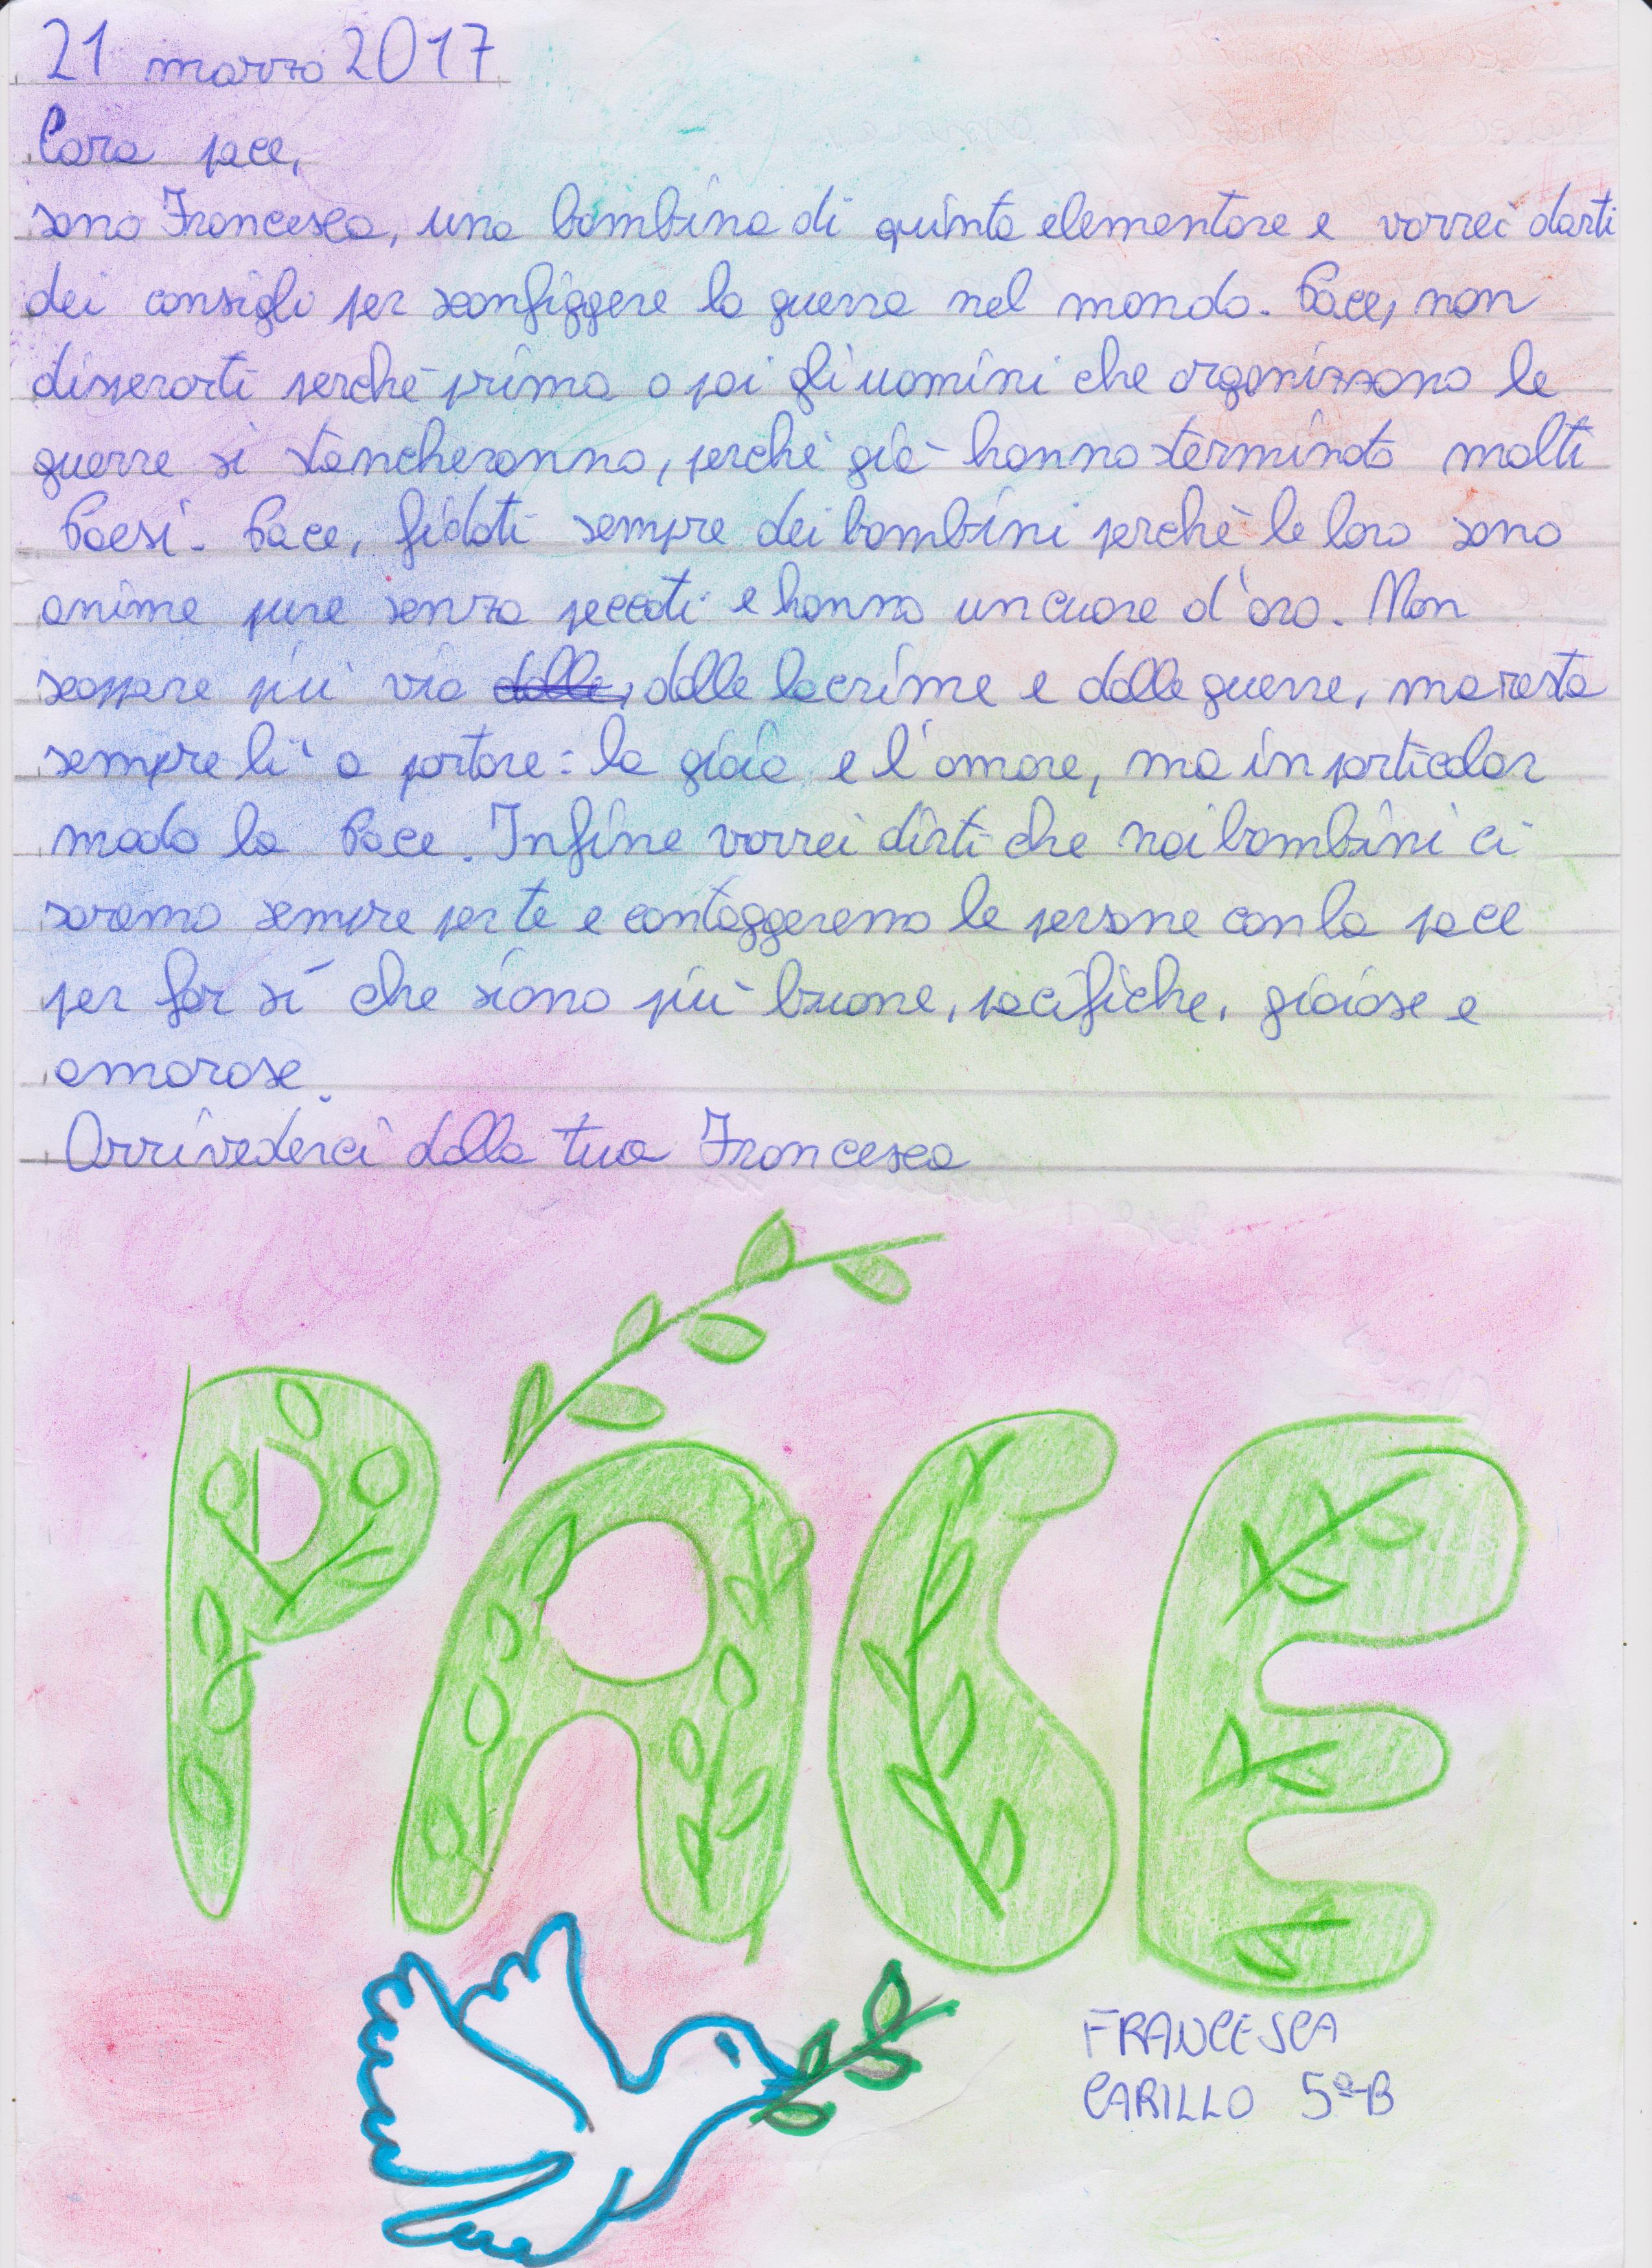 21 marzo 2017
Cara pace,
sono Francesca, una bambina di quinta elementare e vorrei darti
dei consigli per sconfiggere la guerra nel mondo. Pace, non
disperarti perchè prima o poi gli uomini che organizzano le
guerre si stancheranno, perchè già hanno terminato molti
Paesi. Pace, fidati sempre dei bambini perchè le loro sono
anime pure senza peccati e hanno un cuore d'oro. Non
scappare più via dalle, dalle lacrime e dalle guerre, ma resta
sempre lì a portare: la gioia e l'amore, ma in particolar
modo la Pace. Infine vorrei dirti che noi bambini ci
saremo sempre per te e contaggeremo le persone con la pace
per far sì che siano più buone, pacifiche, gioiose e
amorose.
Arrivederci dalla tua Francesca
PACE
FRANCESCA
CARILLO 5ª-B